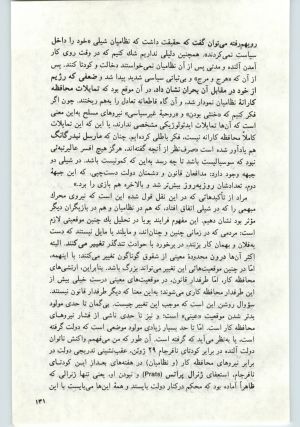 رویهم‌رفته می‌توان گفت که حقیقت داشت که نظامیان شیلی «خود را داخل
سیاست نمی‌کردند». همچنین دلیلی نداریم شک کنیم که در وقت روی کار
آمدن آلنده و مدتی پس از آن نظامیان نمی‌خواستند دخالت و کودتا کنند. پس
از آن که «هرج و مرج» و بی‌ثباتی سیاسی شدید پیدا شد و ضعفی که رژیم
از خود در مقابل آن بحران نشان داد، در آن موقع بود که تمایلات محافظه
کارانهٔ نظامیان نمودار شد، و آن گاه قاطعانه تعادل را به‌هم ریختند. چون اگر
فکر کنیم که «خنثی بودن» و «روحیهٔ غیرسیاسی» نیروهای مسلح به‌این معنی
است که آن‌ها تمایلات ایدئولوژیکی مشخصی ندارند، یا این که این تمایلات
کاملاً محافظه کارانه نیست، فکر باطلی کرده‌ایم. چنان که مارسل نیدرگانگ
هم یادآور شده است «صرف‌نظر از آنچه گفته‌اند، هرگز هیچ افسر عالیرتبه‌ئی
نبود که سوسیالیست باشد تا چه رسد به‌این که کمونیست باشد. در شیلی دو
جبهه وجود دارد: مدافعان قانون و دشمنان دولت دست‌چپی. که این جبههٔ
دوم، تعدادشان روزبه‌روز بیش‌تر شد و بالاخره هم بازی را برد.»
مراد از تأکیدهائی که در این نقل قول شده این است که نیروی محرک
مهمی را که در شیلی اتفاق افتاد، که هم در نظامیان و هم در بازیگران دیگر
مؤثر بود نشان دهیم. این مفهوم فرایند پویا در تحلیل یک چنین موقعیتی لازم
است: مردمی که در زمانی چنین و چنان‌اند، و مایلند یا مایل نیستند که دست
به‌فلان و بهمان کار بزنند، در برخورد با حوادث تندگذر تغییر می‌کنند. البته
اکثر آن‌ها درون محدودهٔ معینی از شقوق گوناگون تغییر می‌کنند: با اینهمه،
اما در چنین موقعیت‌هائی این تغییر می‌تواند بزرگ باشد. بنابراین، ارتشی‌های
محافظه کار، اما طرفدار قانون، در موقعیت‌های معینی درست خیلی بیش از
این طرفدار محافظه کاری می‌شوند: به‌این معنا که دیگر طرفدار قانون نیستند.
سؤال روشن این است که موجب این تغییر چیست. بی‌گمان تا حدی مولود
بدتر شدن موقعیت «عینی» است؛ و نیز تا حدی ناشی از فشار نیروهای
محافظه کار است. اما تا حد بسیار زیادی مولود موضعی است که دولت گرفته
است، یا به‌نظر می‌آید که گرفته است. آن طور که من می‌فهمم واکنش ناتوان
دولت آلنده در برابر کودتای نافرجام ۲۹ ژوئن، عقب‌نشینی تدریجی دولت در
برابر نیروهای محافظه کار (و نظامیان) در هفته‌های بعداز این کودتای
نافرجام، استعفای ژنرال پراتس (Prats) و نبودن او، یعنی تنها ژنرالی که
ظاهراً آماده بود که محکم درکنار دولت بایستد و همهٔ این‌ها می‌بایست با این
۱۳۱